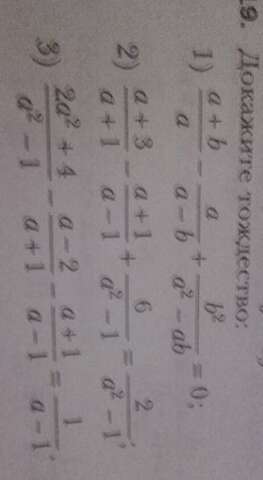 9. Докажите тождество:
1) \frac{a+b}{a} - \frac{a}{a-b} + \frac{b^2}{a^2-ab} = 0;
2) \frac{a+3}{a+1} - \frac{a+1}{a-1} + \frac{6}{a^2-1} = \frac{2}{a^2-1};
3) \frac{2a^2+4}{a^2-1} - \frac{a-2}{a+1} - \frac{a+1}{a-1} = \frac{1}{a-1}.